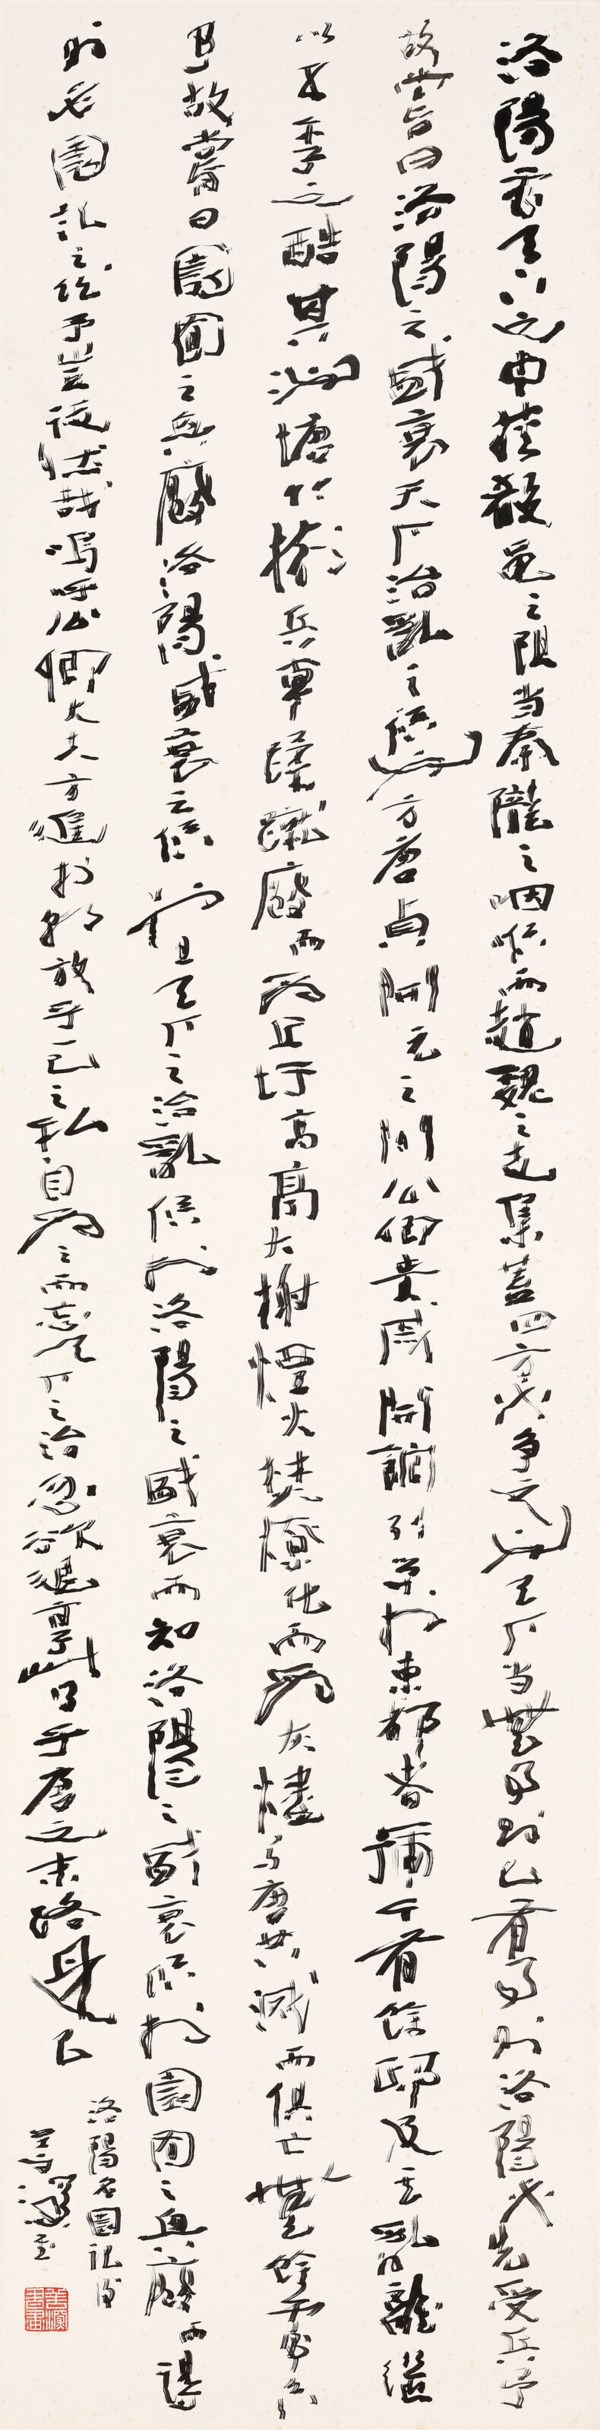 洛陽處天下之中挾殽黽之阻当秦隴之咽喉而趙魏之走集蓋四方必争之也天下当無事則已有事則洛陽必先受兵予
故嘗曰洛陽之盛衰天下治亂之候也方唐貞開元之間公卿貴戚開館列第於東都者號千有餘邸及其亂離繼
以五季之酷其池塘竹樹兵車蹂蹴廢而為丘墟高亭大榭煙火焚燎化而為灰燼与唐共滅而俱亡無餘處矣
予故嘗曰園囿之興廢洛陽盛衰之候也且天下之治亂候於洛陽之盛衰而知洛陽之盛衰候於園囿之興廢而得
則名園記之作予豈徒然哉嗚呼公卿大夫方進於朝放乎一己之私自為之而忘天下之治忽欲退享此得乎唐之末路是已
洛陽名園記後